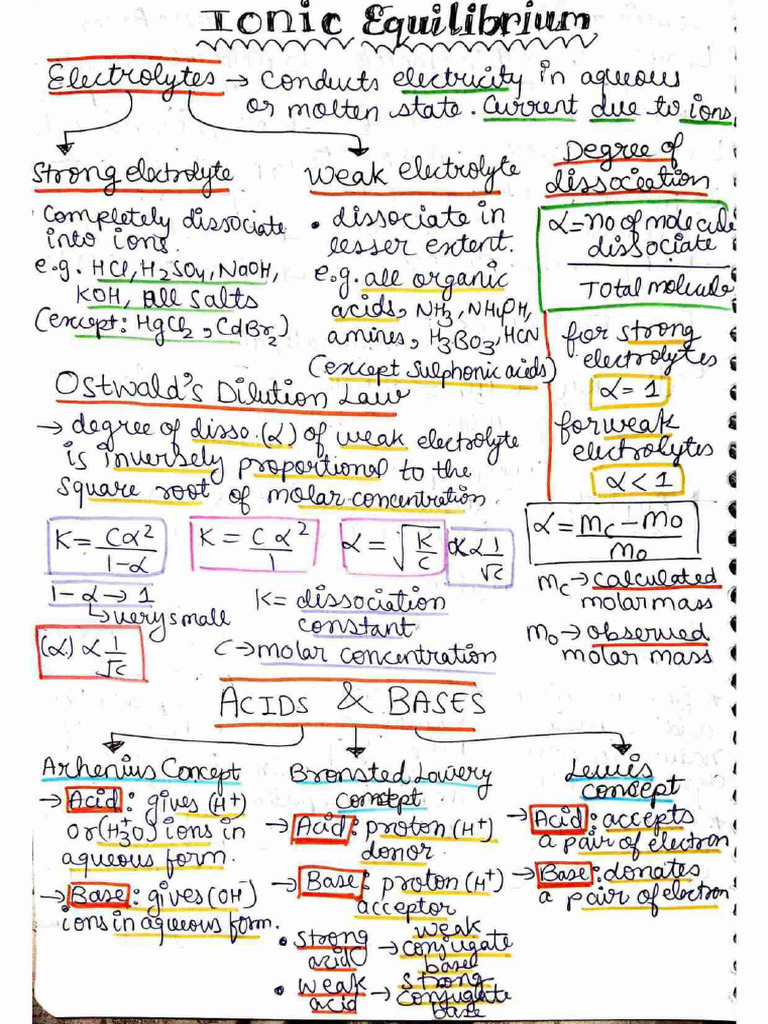 Ionic Equilibrium
Electrolytes → Conducts electricity in aqueous
or molten state. Current due to ions.
Strong electrolyte
Completely dissociate
into ions.
e.g. HCl, H2SO4, NaOH,
KOH, All salts
(except: HgCl2, CdBr2)
Weak electrolyte
• dissociate in
lesser extent.
e.g. all organic
acids, NH3, NH4OH,
amines, H3BO3, HCN
(except sulphonic acids)
Degree of
dissociation
α = no of molecule
dissociate
Total molecule
for strong
electrolytes
α = 1
for weak
electrolytes
α < 1
α = mc - mo
mo
mc → calculated
molar mass
mo → observed
molar mass
Ostwald's Dilution Law
→ degree of disso.(α) of weak electrolyte
is inversely proportional to the
square root of molar concentration
K = Cα²
1-α
K = Cα²
1
α = √K/C
α α 1/√c
1-α → 1
↳ very small
(α) α 1/√c
K = dissociation
constant
C → molar concentration
ACIDS & BASES
Arhenius Concept
→ Acid: gives (H+)
or (H3O+) ions in
aqueous form.
→ Base: gives (OH-)
ions in aqueous form.
Bronsted Lowery
concept
→ Acid: proton (H+)
donor.
→ Base: proton (H+)
acceptor
• strong acid → weak conjugate base
• weak acid → strong conjugate base
Lewis
concept
→ Acid: accepts
a pair of electron
→ Base: donates
a pair of electron